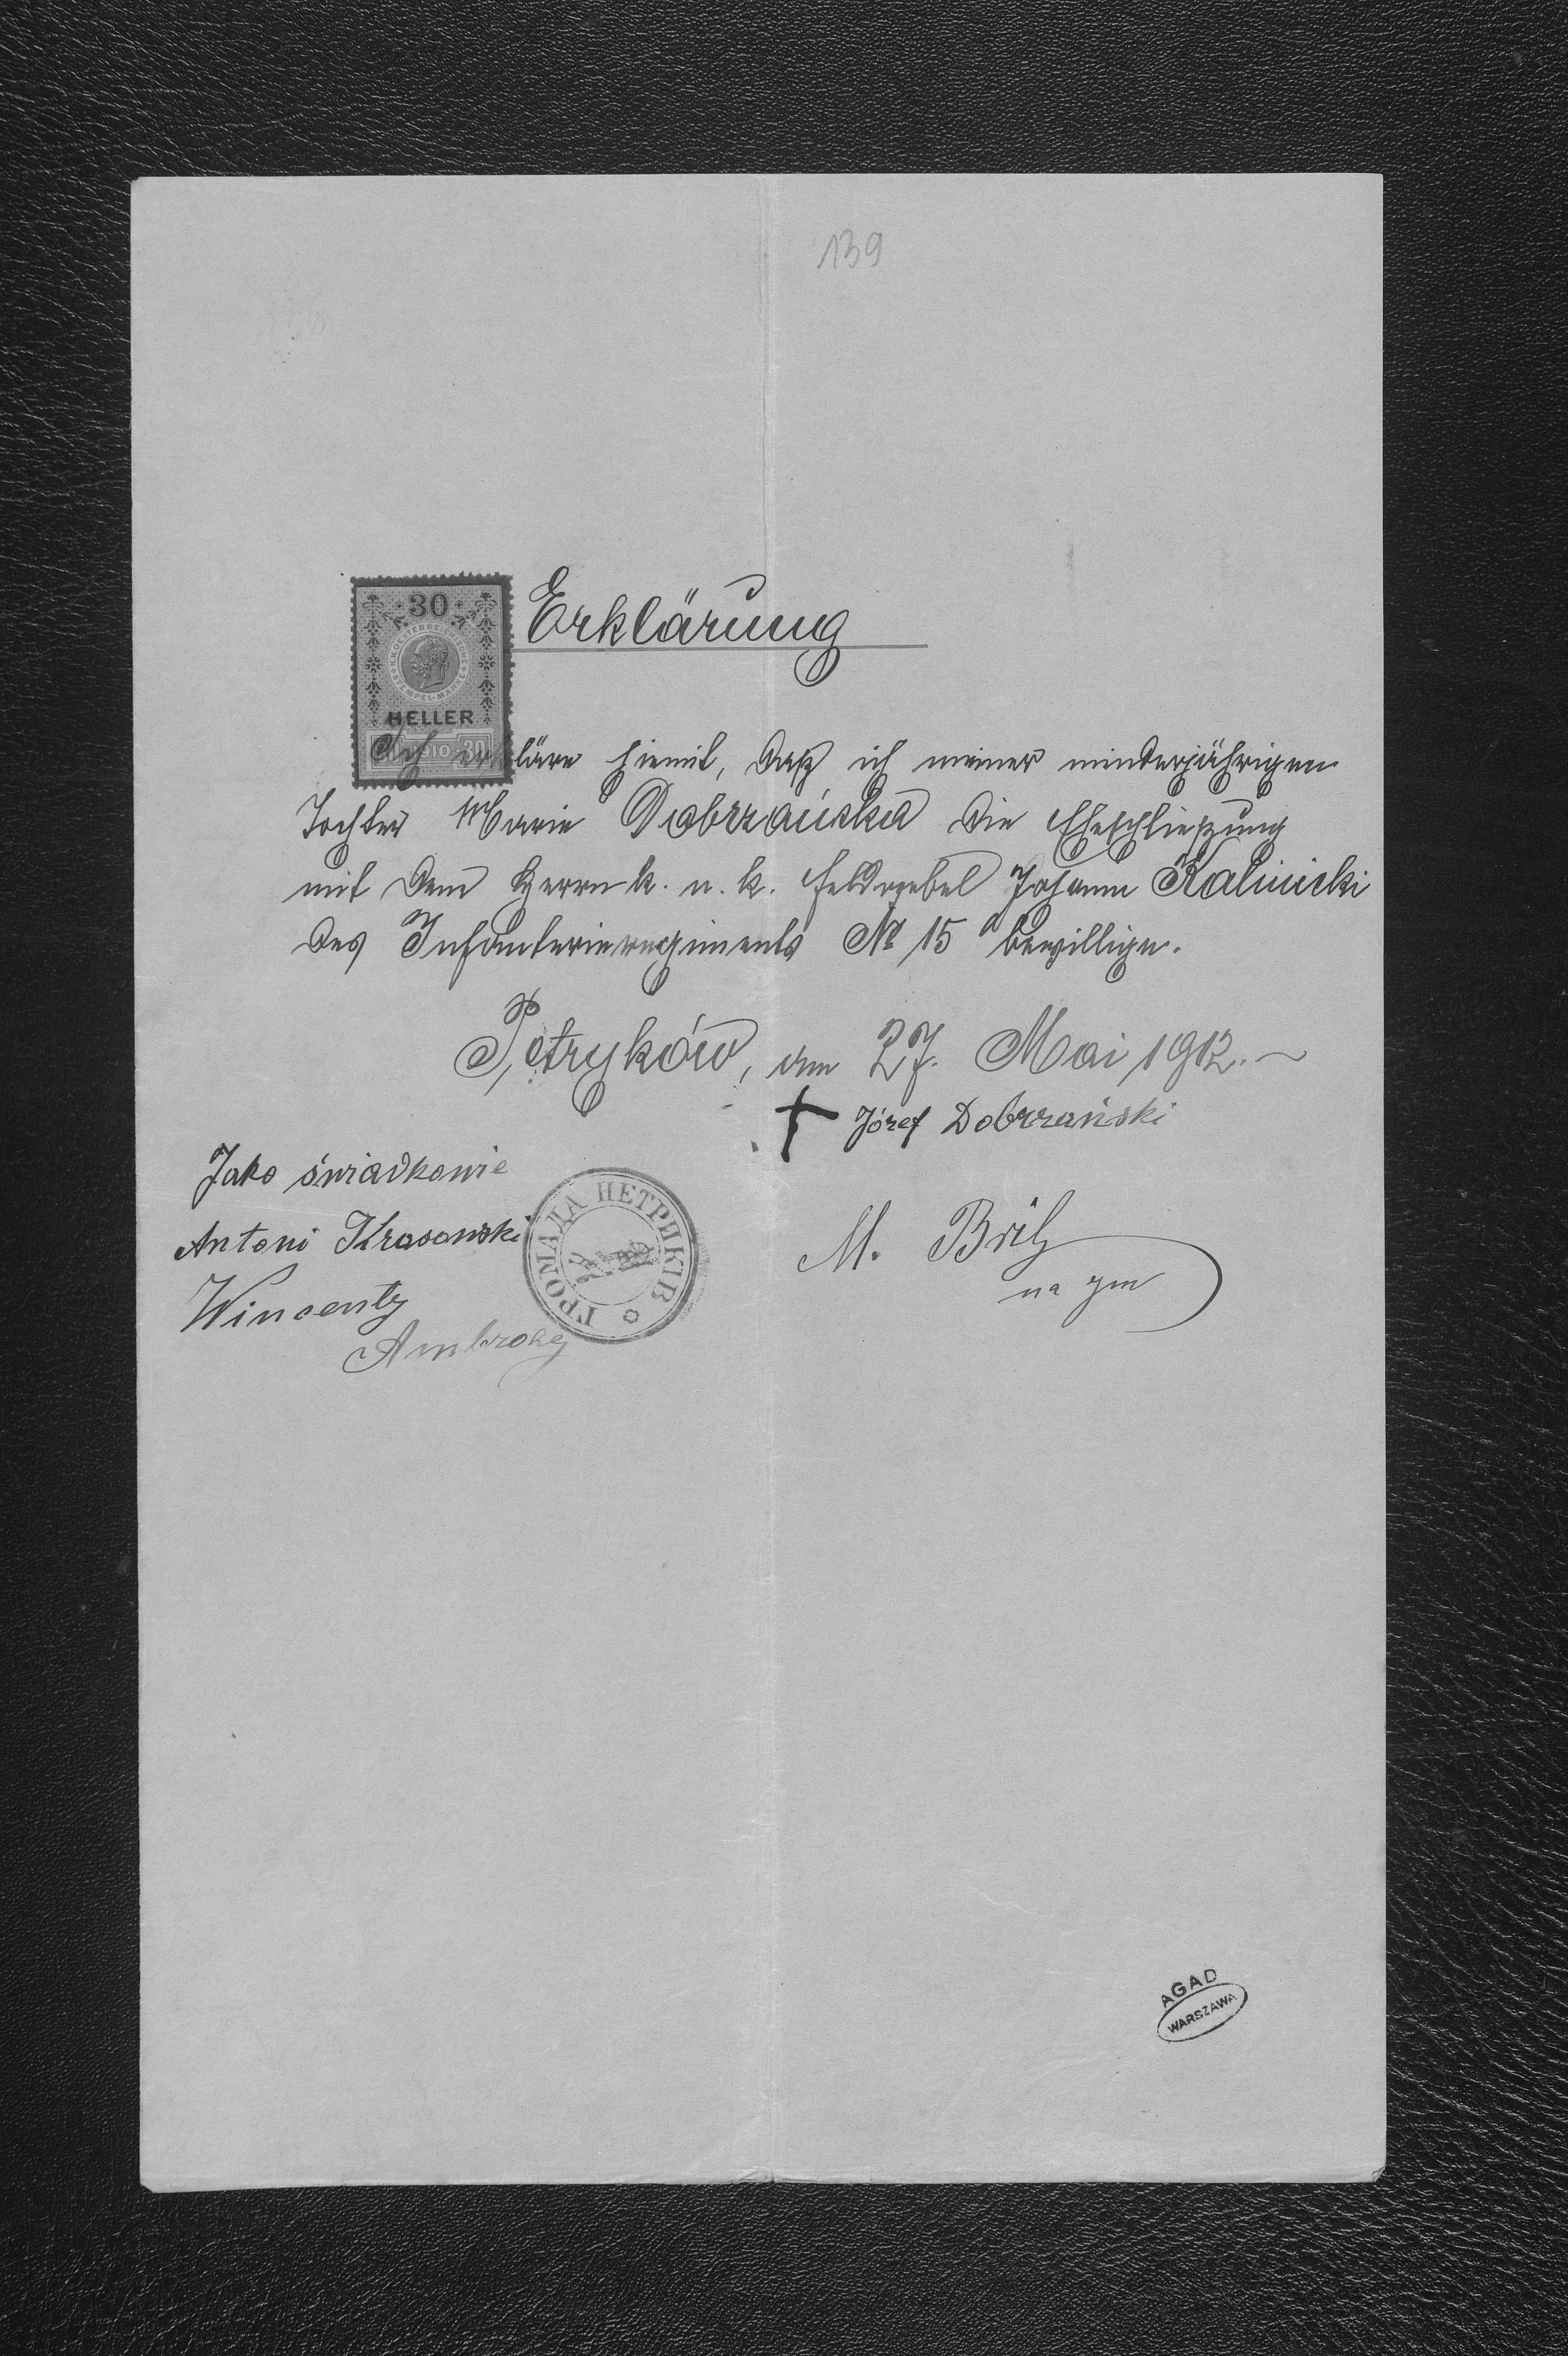 139
30
K.K. OESTERREICHISCHE STEMPEL-MARKE
HELLER
1910
Erklärung
Ich erkläre hiemit, daß ich meiner minderjährigen
Tochter Marie Dobrzańska die Eheschließung
mit dem Herrn k. u. k. Feldwebel Johann Kalinicki
des Infanterieregiments № 15 bewillige.
Petryków, am 27. Mai 1912.
† Józef Dobrzański
Jako świadkowie
Antoni Krasowski
Wincenty
Ambroży
ГРОМАДА ПЕТРИКІВ
M. Bril
AGAD
WARSZAWA